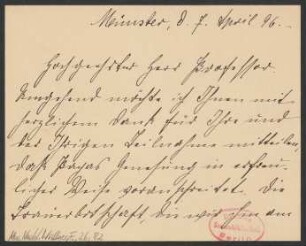 Münster, d. 7. April 96.
Hochgeehrter Herr Professor.
Umgehend möchte ich Ihnen mit
herzlichem Dank für Ihre und
der Ihrigen Teilnahme mitteilen,
daß Papas Genesung in erfreu-
licher Weise voranschreitet. Die
Trauerbotschaft, die wir ihm am